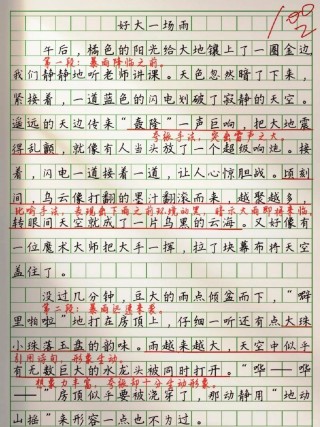 好大一场雨
100
午后，橘色的阳光给大地镶上了一圈金边，
第一段：暴雨降临之前。
我们静静地听老师讲课。天色忽然暗了下来，
紧接着，一道蓝色的闪电划破了寂静的天空。
遥远的天边传来“轰隆”一声巨响，把大地震
夸张手法，突出雷声之大。
得乱颤，就像有人当头放了一个超级响炮。接
着，闪电一道接着一道，让人心惊胆战。顷刻
间，乌云像打翻的墨汁翻滚而来，越聚越多，
比喻手法，表现出下雨之前环境的黑，暗示大雨即将来临。
转眼间天空就成了一片乌黑的云海。又好像有
一位魔术大师把大手一挥，拉了块幕布将天空
盖住了。
没过几分钟，豆大的雨点倾盆而下，“噼
第二段：暴雨迅速来袭。
里啪啦”地打在房顶上，仔细一听还有点大珠
小珠落玉盘的韵味。雨越来越大，天空中似乎
引用诗句，形象生动。
有无数巨大的水龙头被同时打开。“哗——哗—
想象力丰富，夸张却十分生动形象。
—”房顶似乎要被浇穿了，那动静用“地动
山摇”来形容一点也不为过。